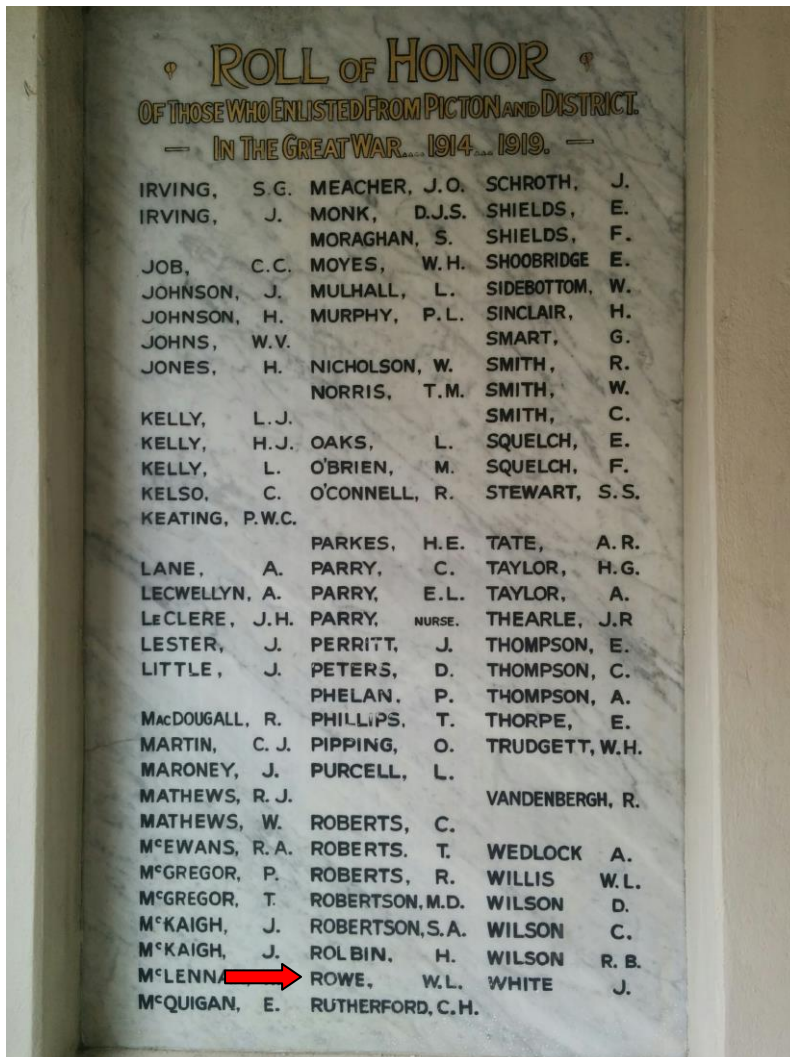 ROLL OF HONOR
OF THOSE WHO ENLISTED FROM PICTON AND DISTRICT.
— IN THE GREAT WAR....1914....1919. —
IRVING, S.G.
IRVING, J.
JOB, C.C.
JOHNSON, J.
JOHNSON, H.
JOHNS, W.V.
JONES, H.
KELLY, L.J.
KELLY, H.J.
KELLY, L.
KELSO, C.
KEATING, P.W.C.
LANE, A.
LECWELLYN, A.
LeCLERE, J.H.
LESTER, J.
LITTLE, J.
MacDOUGALL, R.
MARTIN, C.J.
MARONEY, J.
MATHEWS, R.J.
MATHEWS, W.
McEWANS, R.A.
McGREGOR, P.
McGREGOR, T.
McKAIGH, J.
McKAIGH, J.
McLENNA
McQUIGAN, E.
MEACHER, J.O.
MONK, D.J.S.
MORAGHAN, S.
MOYES, W.H.
MULHALL, L.
MURPHY, P.L.
NICHOLSON, W.
NORRIS, T.M.
OAKS, L.
O'BRIEN, M.
O'CONNELL, R.
PARKES, H.E.
PARRY, C.
PARRY, E.L.
PARRY, NURSE.
PERRITT, J.
PETERS, D.
PHELAN, P.
PHILLIPS, T.
PIPPING, O.
PURCELL, L.
ROBERTS, C.
ROBERTS. T.
ROBERTS, R.
ROBERTSON, M.D.
ROBERTSON, S.A.
ROLBIN, H.
ROWE, W.L.
RUTHERFORD, C.H.
SCHROTH, J.
SHIELDS, E.
SHIELDS, F.
SHOOBRIDGE E.
SIDEBOTTOM, W.
SINCLAIR, H.
SMART, G.
SMITH, R.
SMITH, W.
SMITH, C.
SQUELCH, E.
SQUELCH, F.
STEWART, S.S.
TATE, A.R.
TAYLOR, H.G.
TAYLOR, A.
THEARLE, J.R
THOMPSON, E.
THOMPSON, C.
THOMPSON, A.
THORPE, E.
TRUDGETT, W.H.
VANDENBERGH, R.
WEDLOCK A.
WILLIS W.L.
WILSON D.
WILSON C.
WILSON R.B.
WHITE J.